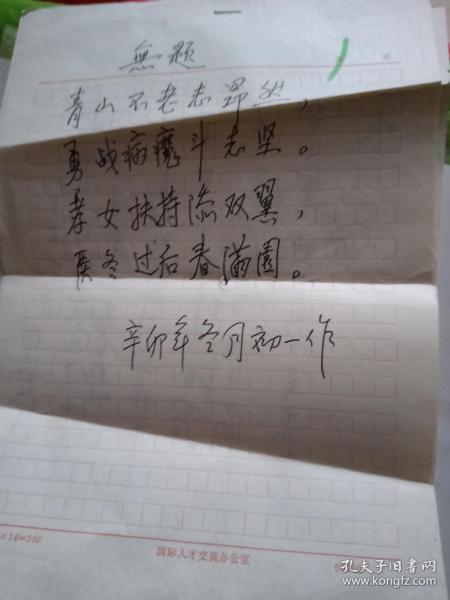 無题
青山不老志昂然,
勇战病魔斗志坚。
孝女扶持添双翼,
医冬过后春满園。
辛卯年冬月初一作
×14=280
国际人才交流办公室
孔夫子旧书网
https://book.kongfz.com